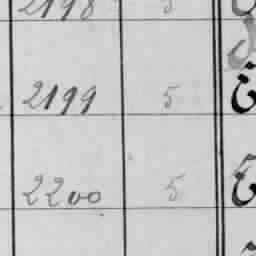 2198 5
2199 5
2200 5